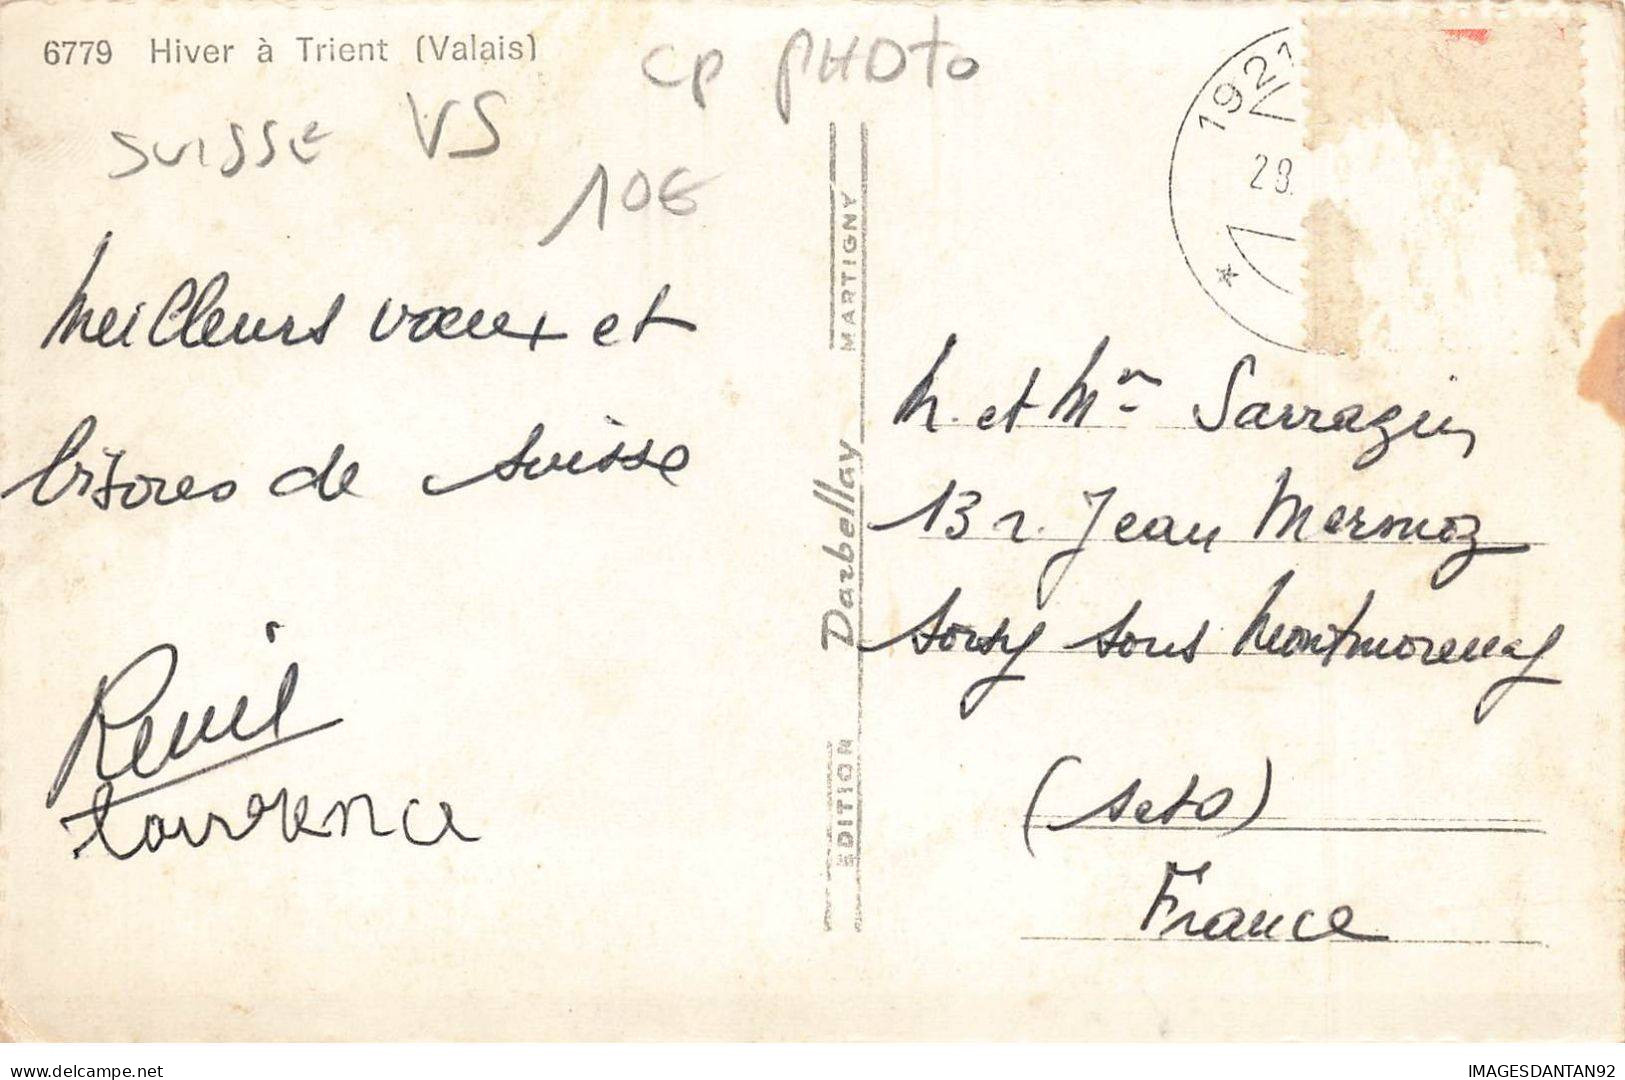 6779 Hiver à Trient (Valais)
CP PHOTO
SUISSE VS
10€
Meilleurs vœux et
bisous de Suisse
1921
28.
M. et Mme Sarrazin
13 r. Jean Mermoz
Soisy sous Montmorency
(S et O)
France
EDITION Darbellay MARTIGNY
IMAGESDANTAN92